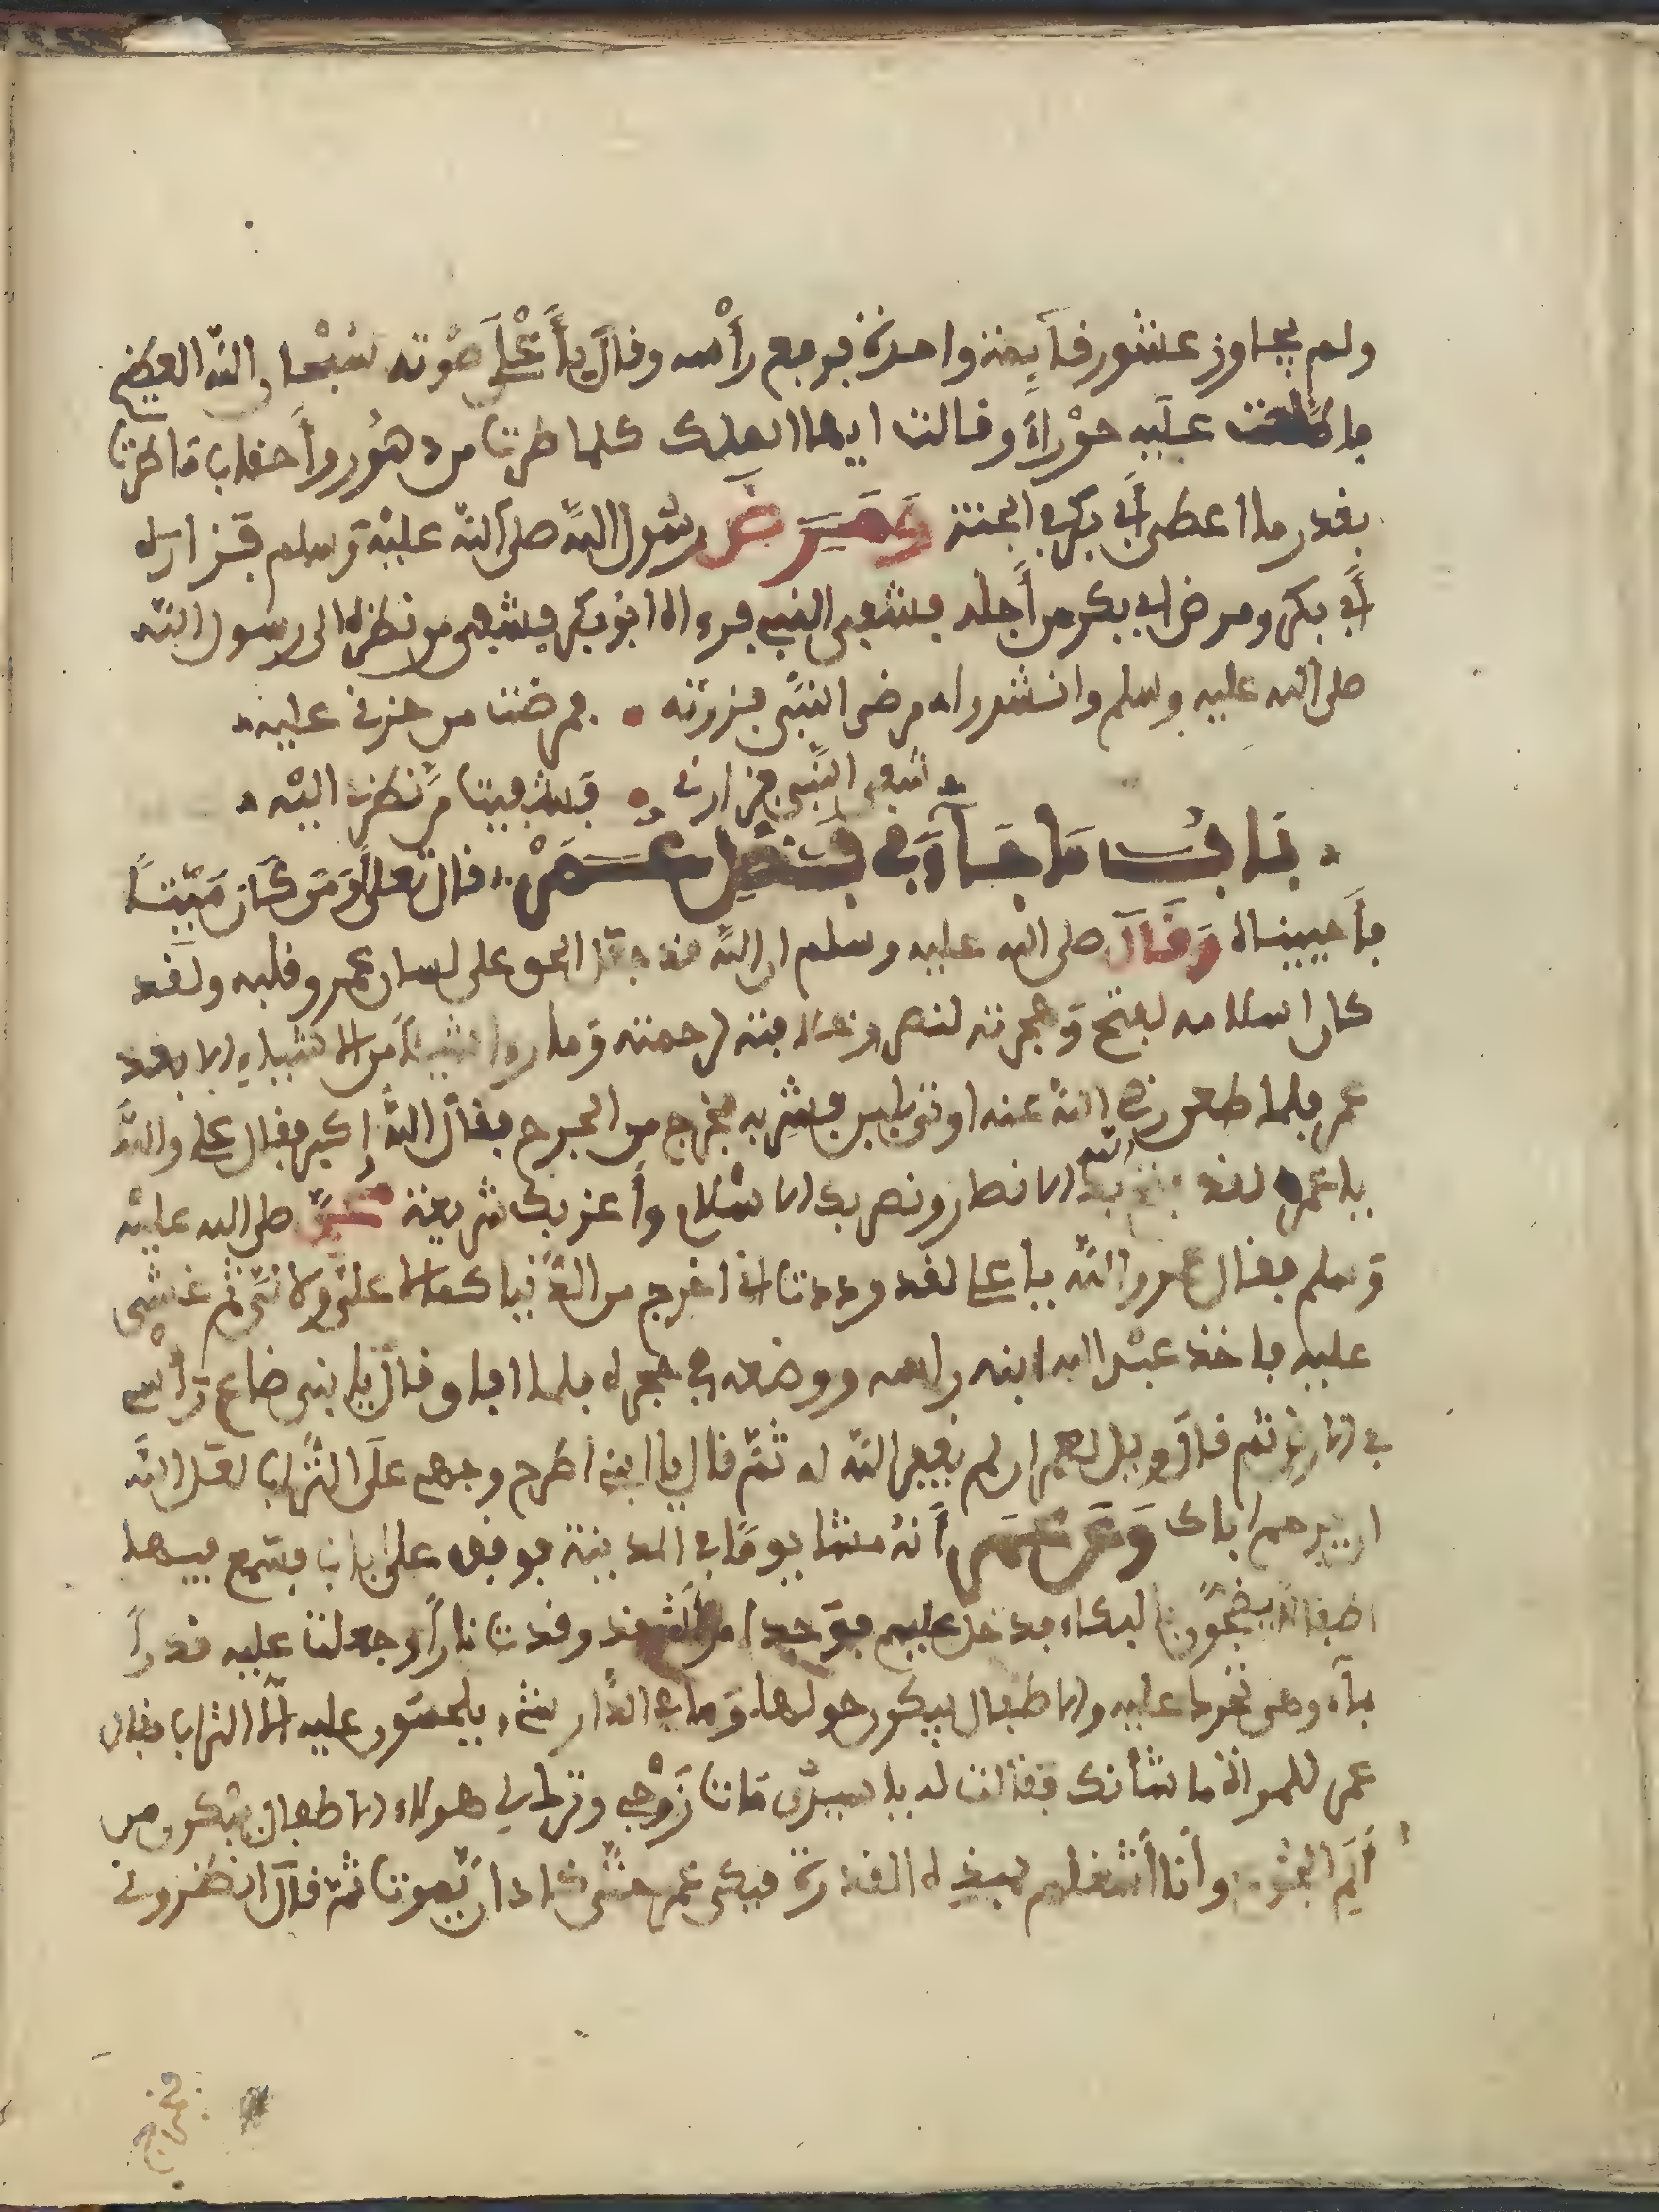 ولم يجاوز عشور قايمة واحدة فرجع رأسه وقال يأعلى صوته سبحان الله العظيم
فاطلعت عليه حوراء وقالت ايها الملك كلما طرت من دهور وأحقاب ما طرت
بقدر ما اعطى أبي بكر في الجنة ومرض رسول الله صلى الله عليه وسلم فزاره
أبي بكر ومرض ابي بكر من أجله فشفى النبي فزاره ابو بكر فشفى من نظره الى رسول الله
صلى الله عليه وسلم وانشد مرض النبي فزرته • فمرضت من حزني عليه
شفى النبي فزارني • فشفيت من نظري اليه
باب ما جاء في فضل عمر قال تعلى ومن كان ميتا
فأحييناه وقال صلى الله عليه وسلم ان الله قد جعل الحق على لسان عمر وقلبه ولقد
كان اسلامه لفتح وهجرته لنصر وخلافته لرحمة وما روا شيئا من الاشياء الا بعد
عمر فلما طعن رضي الله عنه اوتي بلبن فشربه فخرج من الجرح فقال الله اكبر فقال علي والله
يا عمر لقد فتح الله بك الامطار ونصر بك الاسلام وأعز بك شريعة محمد صلى الله عليه
وسلم فقال عمر والله يا علي لقد وددت اني اخرج من الدنيا كفافا لا علي ولا لي ثم غشي
عليه فاخذ عبد الله ابنه راسه ووضعه في حجره فلما افاق قال يا بني ضاع رأسي
في الارض ثم قال ويل لعمر ان لم يغفر الله له ثم قال يا ابني اطرح وجهي على التراب لعل الله
ان يرحم اباك وعن عمر أنه مشا يوما في المدينة فوقف على باب فسمع فيها
اطفالا يضجون بالبكاء فدخل عليهم فوجد امرأة قد وقدت نارا وجعلت عليه قدرا
بماء وهي تغرف عليه والاطفال يبكون حولها وما في الدار شيء يلحسون عليه الا التراب فقال
عمر للمرأة ما شأنك فقالت له يا سيدي مات زوجي وترك لي هولاء الاطفال يبكون من
ألم الجوع وأنا أشغلهم بهذه القدرة فبكى عمر حتى كاد ان يموت ثم قال انظروني
فخرج